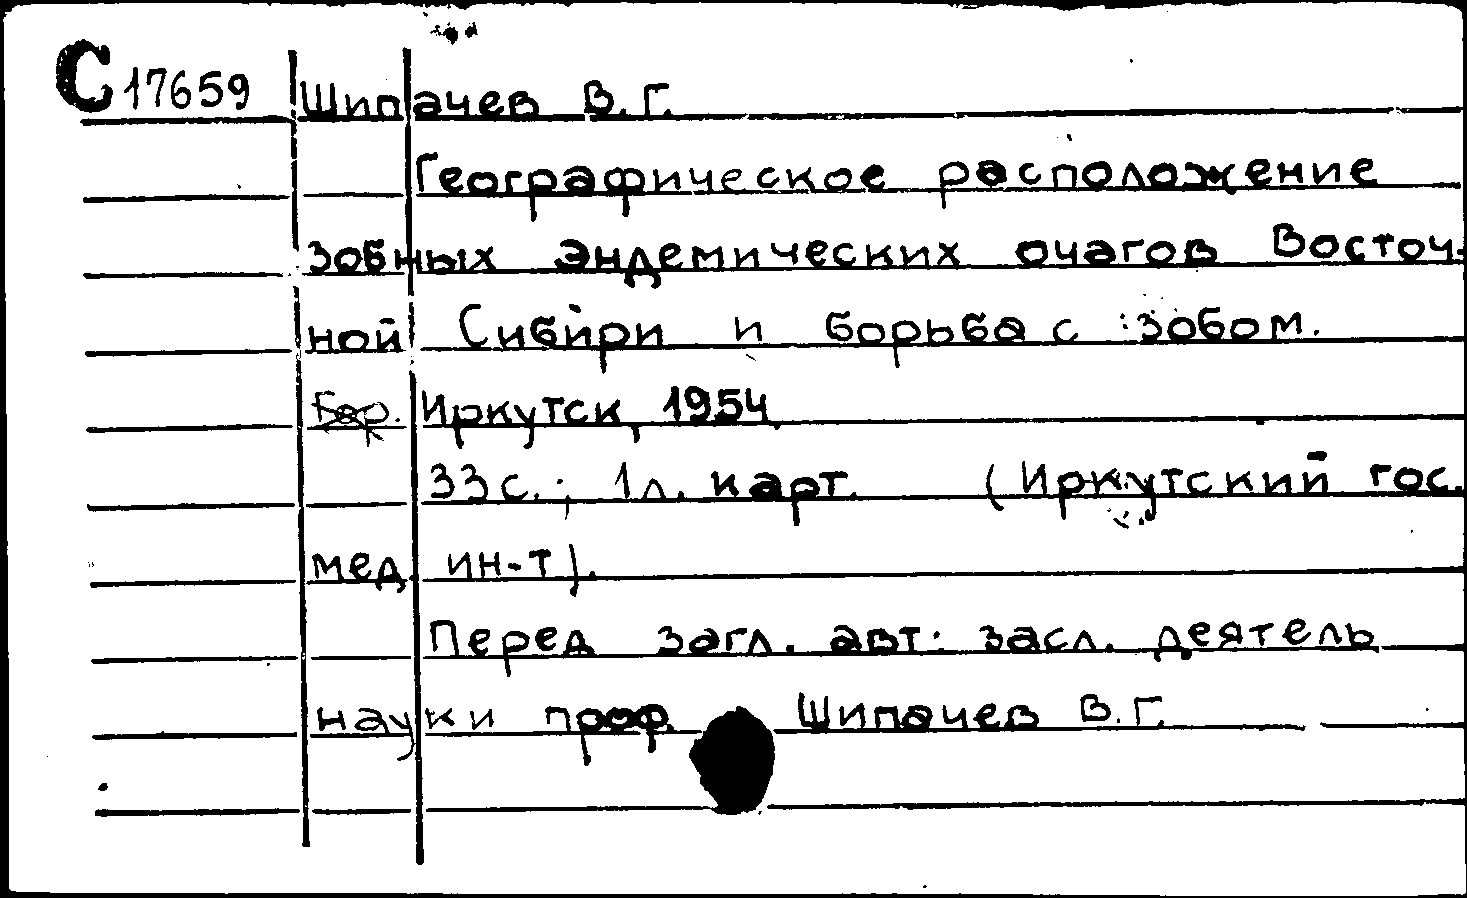 С 17659 Шипачев В.Г.
Географическое расположение
зобных эндемических очагов Восточ-
ной Сибири и борьба с зобом.
Иркутск, 1954.
33 с.; 1 л. карт. (Иркутский гос.
мед ин-т).
Перед загл. авт: засл. деятель
науки проф. Шипачев В.Г.